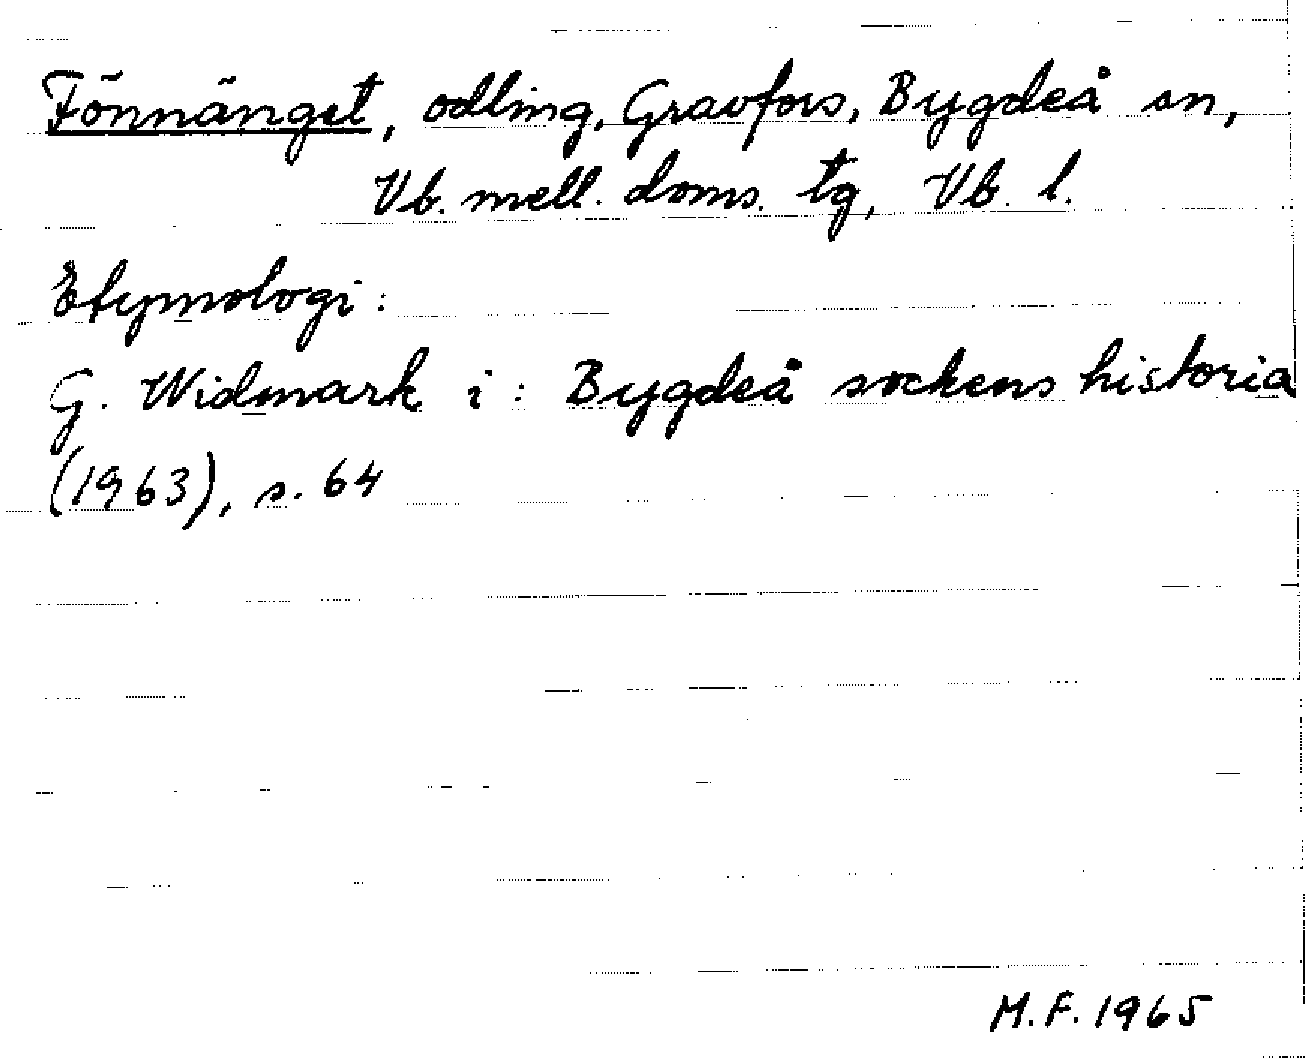 Fönnänget, odling, Gravfors, Bygdeå sn,
Vb. mell. doms. tg, Vb. l.
Etymologi:
G. Widmark i: Bygdeå sockens historia
(1963), s. 64
M.F. 1965